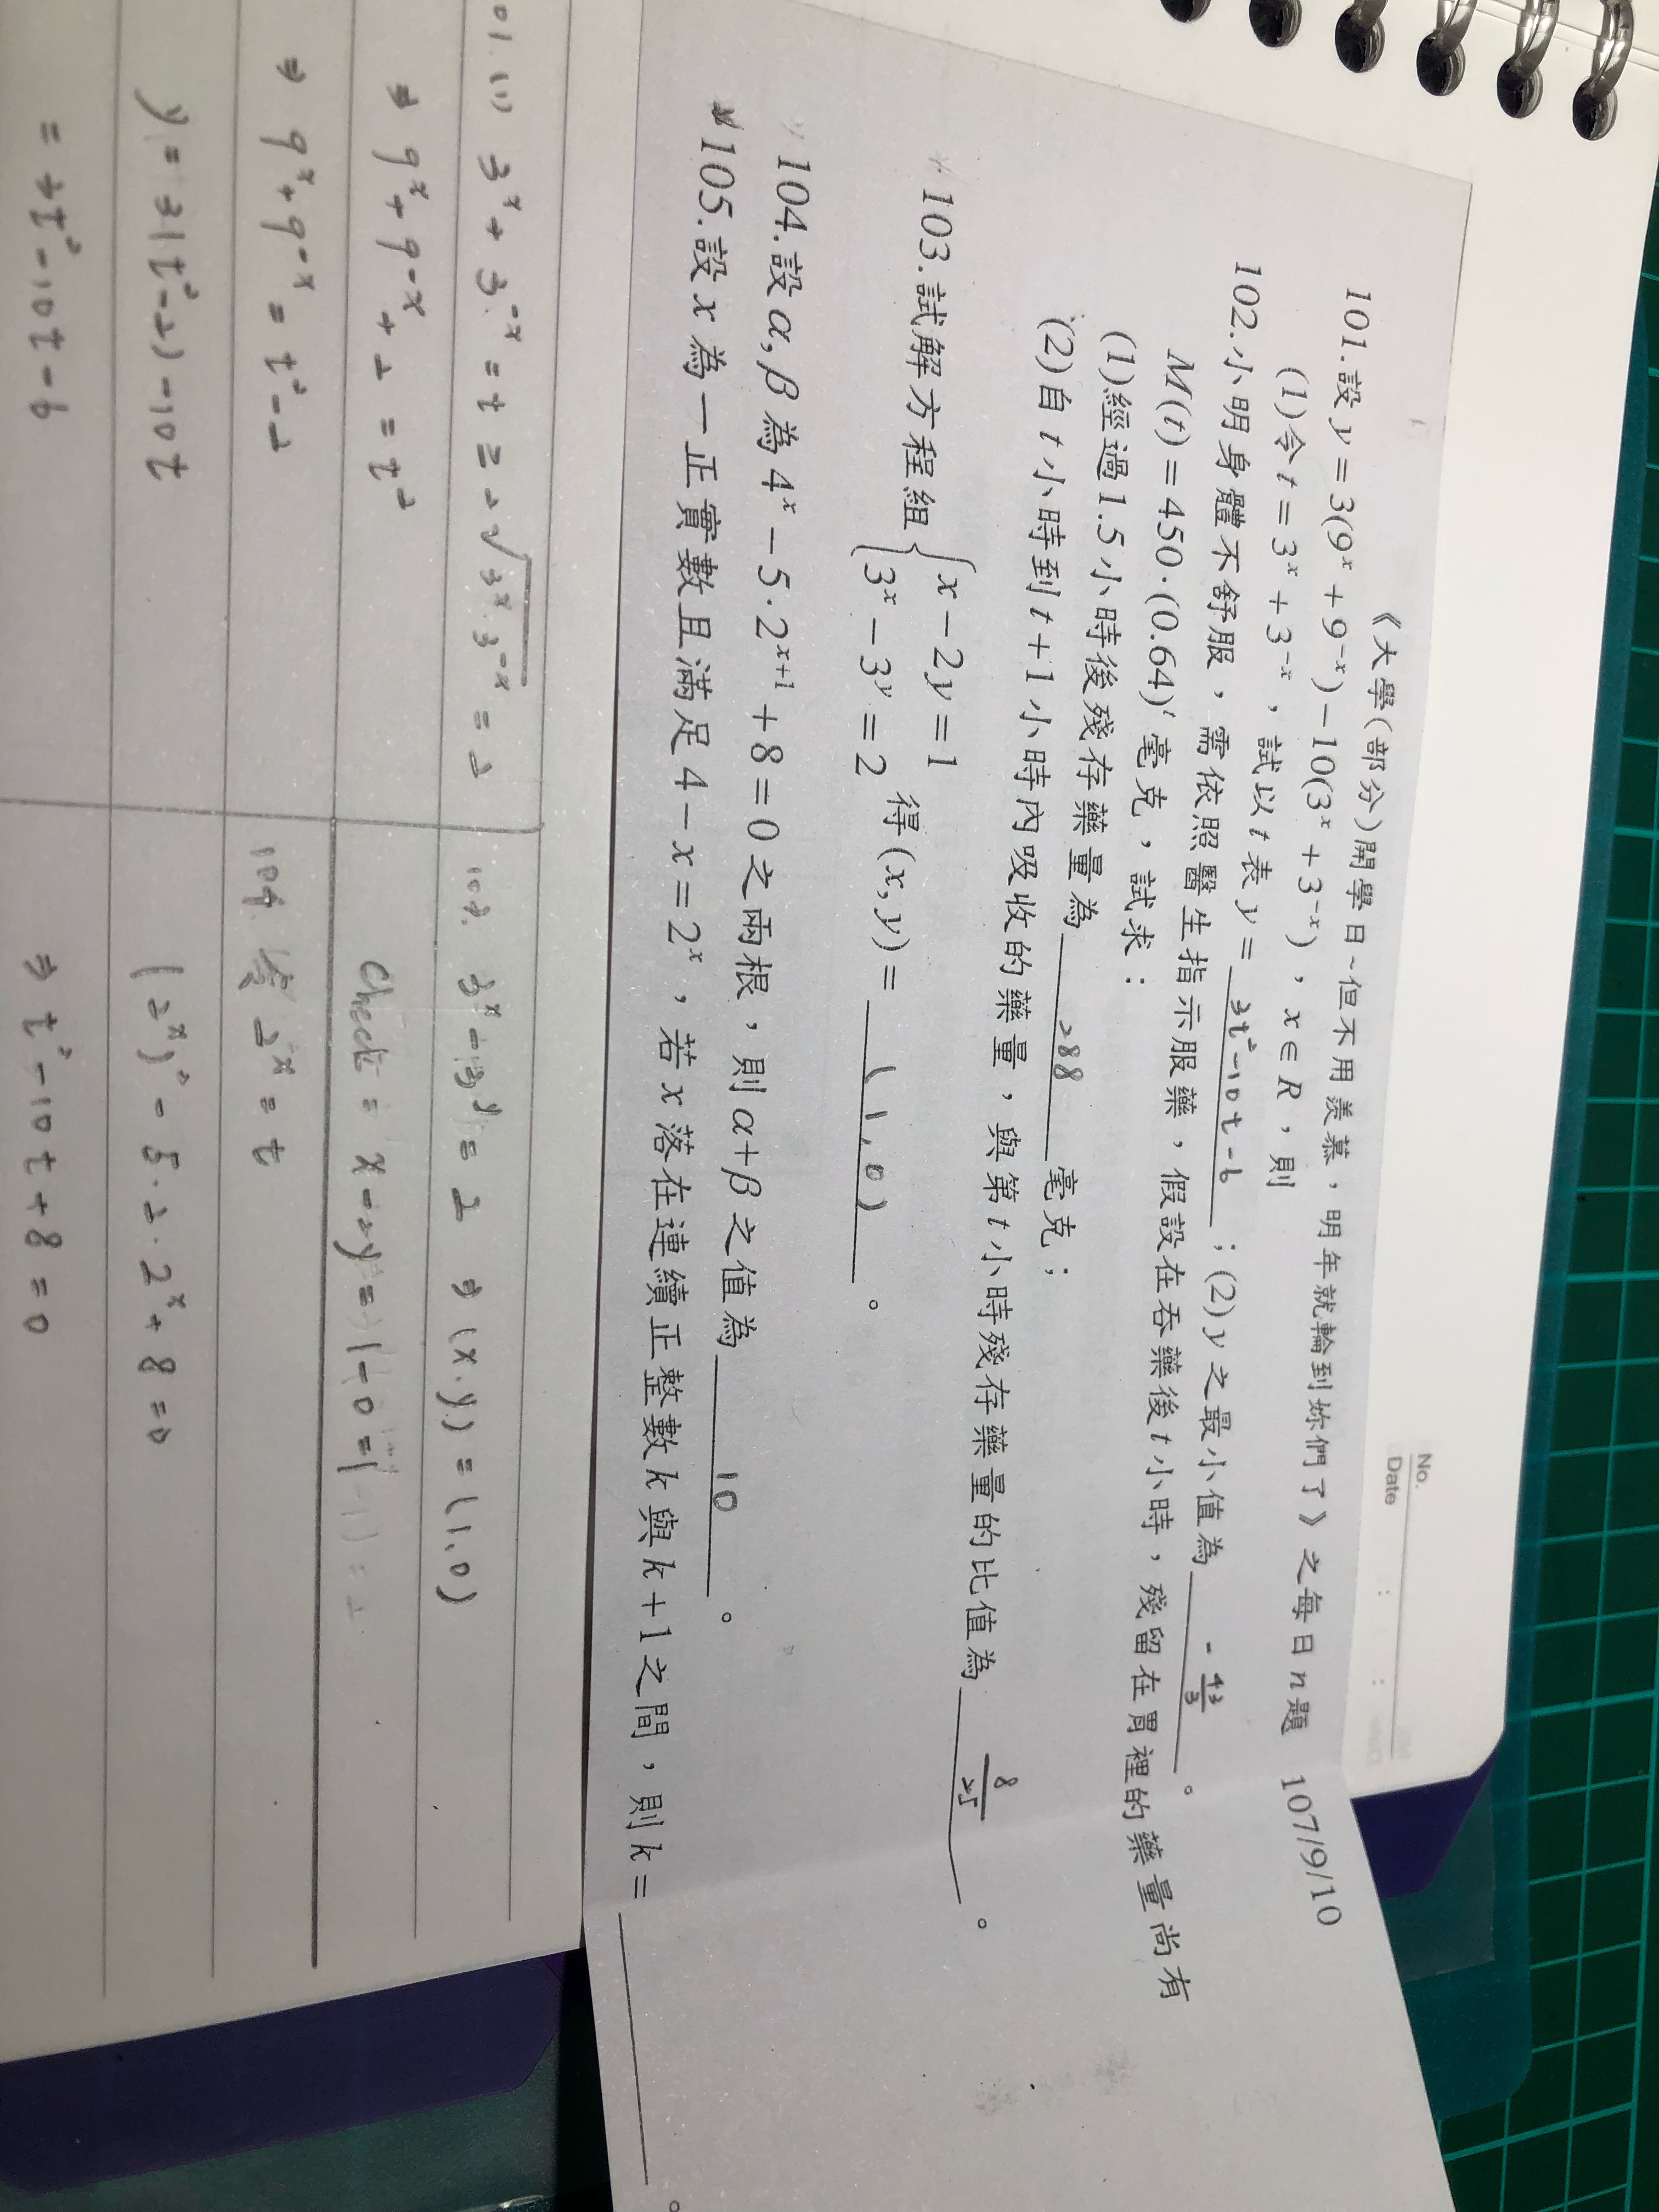 No.
Date : :
《大學(部分)開學日~但不用羨慕，明年就輪到妳們了》之每日n題 107/9/10
101.設 y=3(9^x+9^-x)-10(3^x+3^-x)，x∈R，則
(1)令 t=3^x+3^-x，試以 t 表 y= 3t²-10t-6 ；(2) y 之最小值為 -43/3 。
102.小明身體不舒服，需依照醫生指示服藥，假設在吞藥後 t 小時，殘留在胃裡的藥量尚有
M(t)=450·(0.64)^t 毫克，試求：
(1)經過1.5小時後殘存藥量為 288 毫克；
(2)自 t 小時到 t+1 小時內吸收的藥量，與第 t 小時殘存藥量的比值為 8/25 。
103.試解方程組 { x-2y=1
3^x-3^y=2 得(x,y)= (1,0) 。
104.設 α,β 為 4^x-5·2^(x+1)+8=0 之兩根，則 α+β 之值為 10 。
105.設 x 為一正實數且滿足 4-x=2^x，若 x 落在連續正整數 k 與 k+1 之間，則 k= 。
01. (1) 3^x+3^-x=t≥2√(3^x·3^-x)=2
⇒ 9^x+9^-x+2=t²
⇒ 9^x+9^-x=t²-2
y=3(t²-2)-10t
=3t²-10t-6
3^x-3^y=2 ⇒ (x.y)=(1,0)
Check = x-2y=1-0=1
104. 令 2^x=t
(2^x)²-5·2·2^x+8=0
⇒ t²-10t+8=0